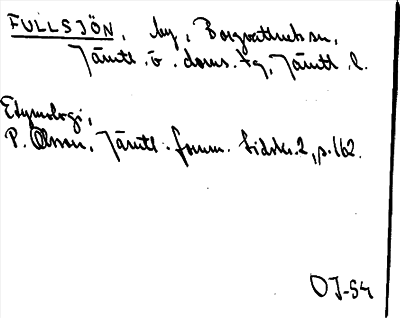 FULLSJÖN, by, Borgvattnets sn,
Jämtl. ö. doms. tg, Jämtl. l.
Etymologi,
P. Olsson, Jämtl. fornm. tidskr. 2, p. 162.
OJ-54